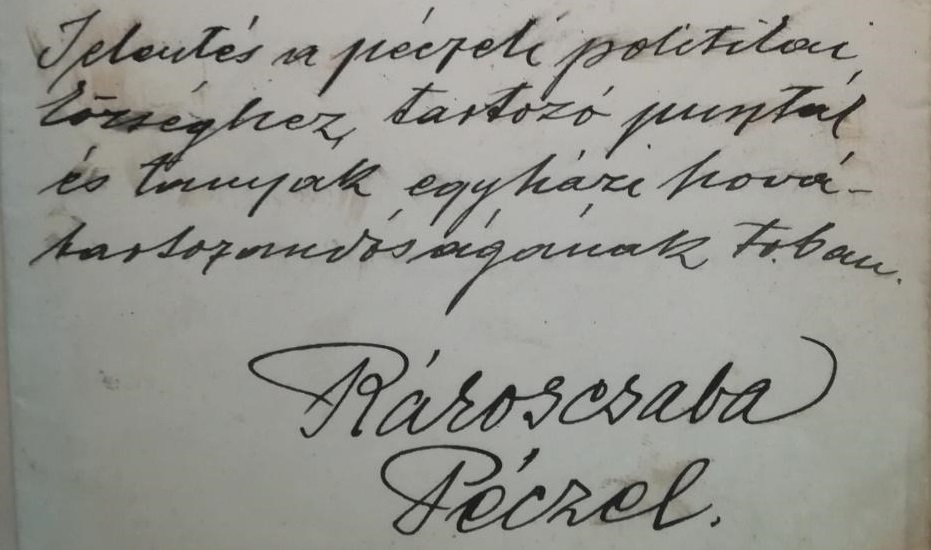 Jelentés a péczeli politikai
községhez tartozó puszták
és tanyák egyházi hová-
tartozandóságának tr.ban.
Rároscsaba
Péczel.